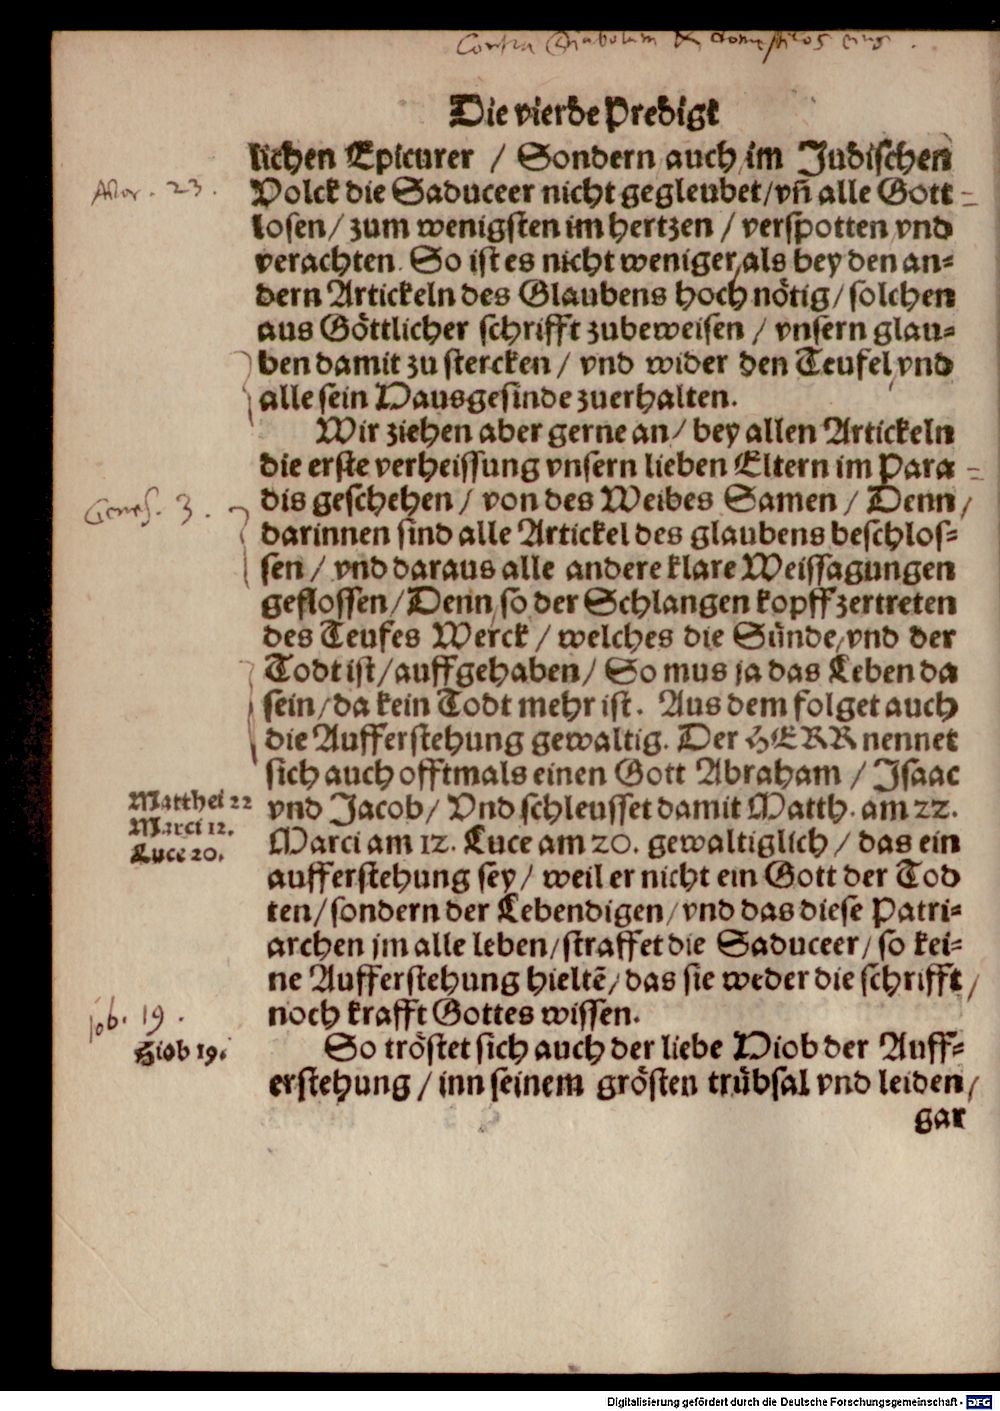 Contra Diabolum & domesticos eius.
Die vierde Predigt
lichen Epicurer / Sondern auch im Judischen
Actor. 23.
Volck die Saduceer nicht gegleubet / vñ alle Gott=
losen / zum wenigsten im hertzen / verspotten vnd
verachten. So ist es nicht weniger, als bey den an=
dern Artickeln des Glaubens hoch nötig / solchen
aus Göttlicher schrifft zubeweisen / vnsern glau=
ben damit zu stercken / vnd wider den Teufel, vnd
alle sein Hausgesinde zuerhalten.
Wir ziehen aber gerne an / bey allen Artickeln
die erste verheissung vnsern lieben Eltern im Para=
Genes. 3.
dis geschehen / von des Weibes Samen / Denn /
darinnen sind alle Artickel des glaubens beschlos=
sen / vnd daraus alle andere klare Weissagungen
geflossen / Denn, so der Schlangen kopff zertreten
des Teufes Werck / welches die Sünde, vnd der
Todt ist / auffgehaben / So mus ja das Leben da
sein / da kein Todt mehr ist. Aus dem folget auch
die Aufferstehung gewaltig. Der HERR nennet
sich auch offtmals einen Gott Abraham / Isaac
Matthei 22
Marci 12.
Luce 20.
vnd Jacob / Vnd schleusset damit Matth. am 22.
Marci am 12. Luce am 20. gewaltiglich / das ein
aufferstehung sey / weil er nicht ein Gott der Tod
ten / sondern der Lebendigen / vnd das diese Patri=
archen jm alle leben / straffet die Saduceer / so kei=
ne Aufferstehung hieltē / das sie weder die schrifft /
noch krafft Gottes wissen.
Iob. 19.
Hiob 19.
So tröstet sich auch der liebe Hiob der Auff=
erstehung / inn seinem grösten trübsal vnd leiden /
gar
Digitalisierung gefördert durch die Deutsche Forschungsgemeinschaft - DFG